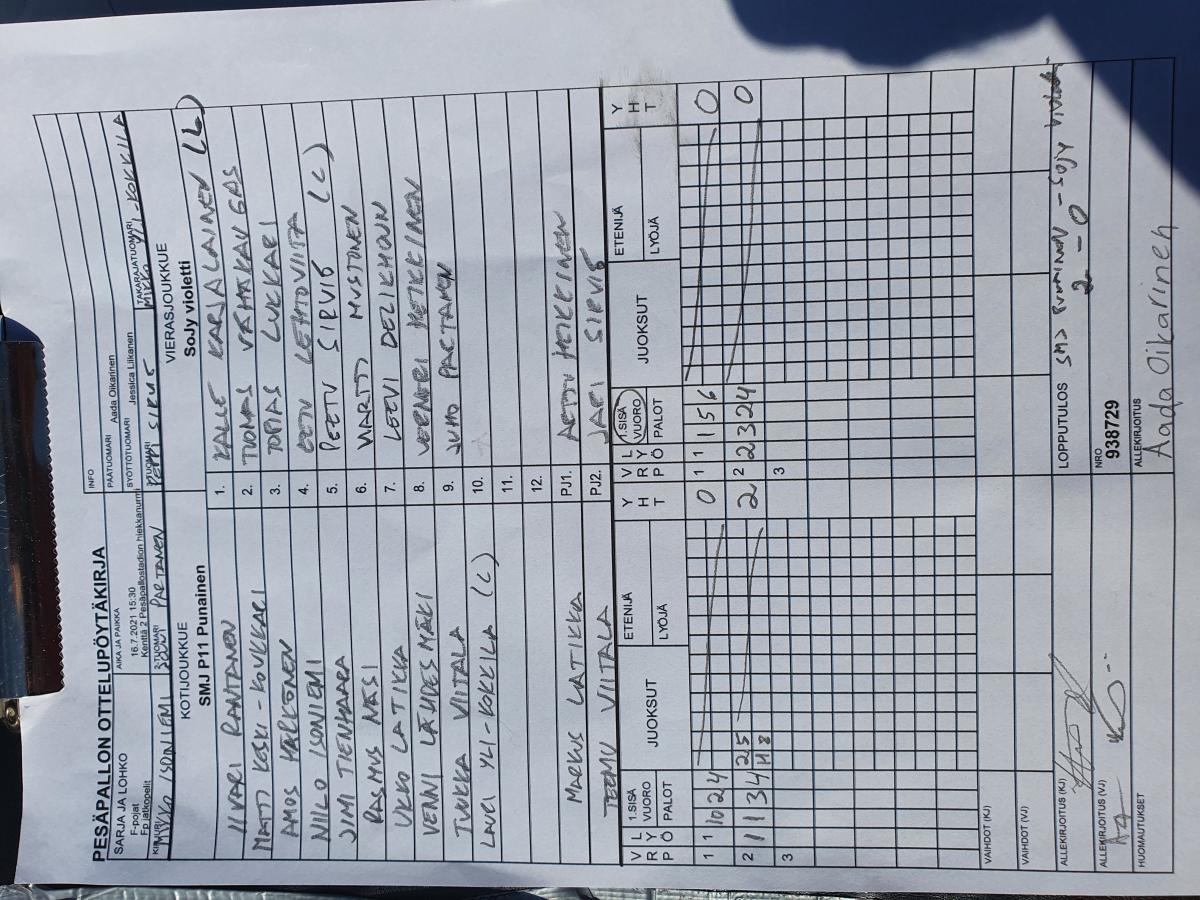 PESÄPALLON OTTELUPÖYTÄKIRJA
SARJA JA LOHKO
F-pojat
Fp jatkopelit
AIKA JA PAIKKA
16.7.2021 15:30
Kenttä 2 Pesäpallostadion hiekkanurmi
INFO
PÄÄTUOMARI Aada Oikarinen
SYÖTTÖTUOMARI Jessica Liikanen
KIRJURI ISONIEMI
2-TUOMARI PARTANEN
TAKARAJATUOMARI MIKKO YLI-KOKKILA
KOTIJOUKKUE
SMJ P11 Punainen
VIERASJOUKKUE
SoJy violetti (L)
IIVARI RANTANEN 1. KALLE KARJALAINEN
MATTI KESKI-KOUKKARI 2. TUOMAS VÄHÄKANGAS
AMOS 3. TOPIAS LUKKARI
NIILO ISONIEMI 4. EETU LEHTOVIITA
JIMI TIENHAARA 5. PEETU SIRVIÖ (C)
RASMUS NÄSI 6. MARTTI MUSTONEN
UKKO LATIKKA 7. LEEVI DELIKHOUN
VENNI LÄHDESMÄKI 8. VERNERI HEIKKINEN
TUUKKA VIITALA 9. JUHO PARTANEN
LAURI YLI-KOKKILA (C) 10.
11.
12.
MARKUS LATIKKA PJ1. ARTTU HEIKKINEN
TEEMU VIITALA PJ2. JARI SIRVIÖ
V R P L Y Ö 1.SISÄ VUORO PALOT JUOKSUT ETENIJÄ LYÖJÄ Y H T V R P L Y Ö 1.SISÄ VUORO PALOT JUOKSUT ETENIJÄ LYÖJÄ Y H T
1 1 10 2 4 0 1 1 1 5 6 0
2 1 1 3 4 2 5 H 8 2 2 2 3 2 4 0
3 3
VAIHDOT (KJ)
VAIHDOT (VJ)
ALLEKIRJOITUS (KJ)
LOPPUTULOS SMJ PUNAINEN - SOJY
2 - 0
ALLEKIRJOITUS (VJ)
NRO
938729
HUOMAUTUKSET
ALLEKIRJOITUS
Aada Oikarinen